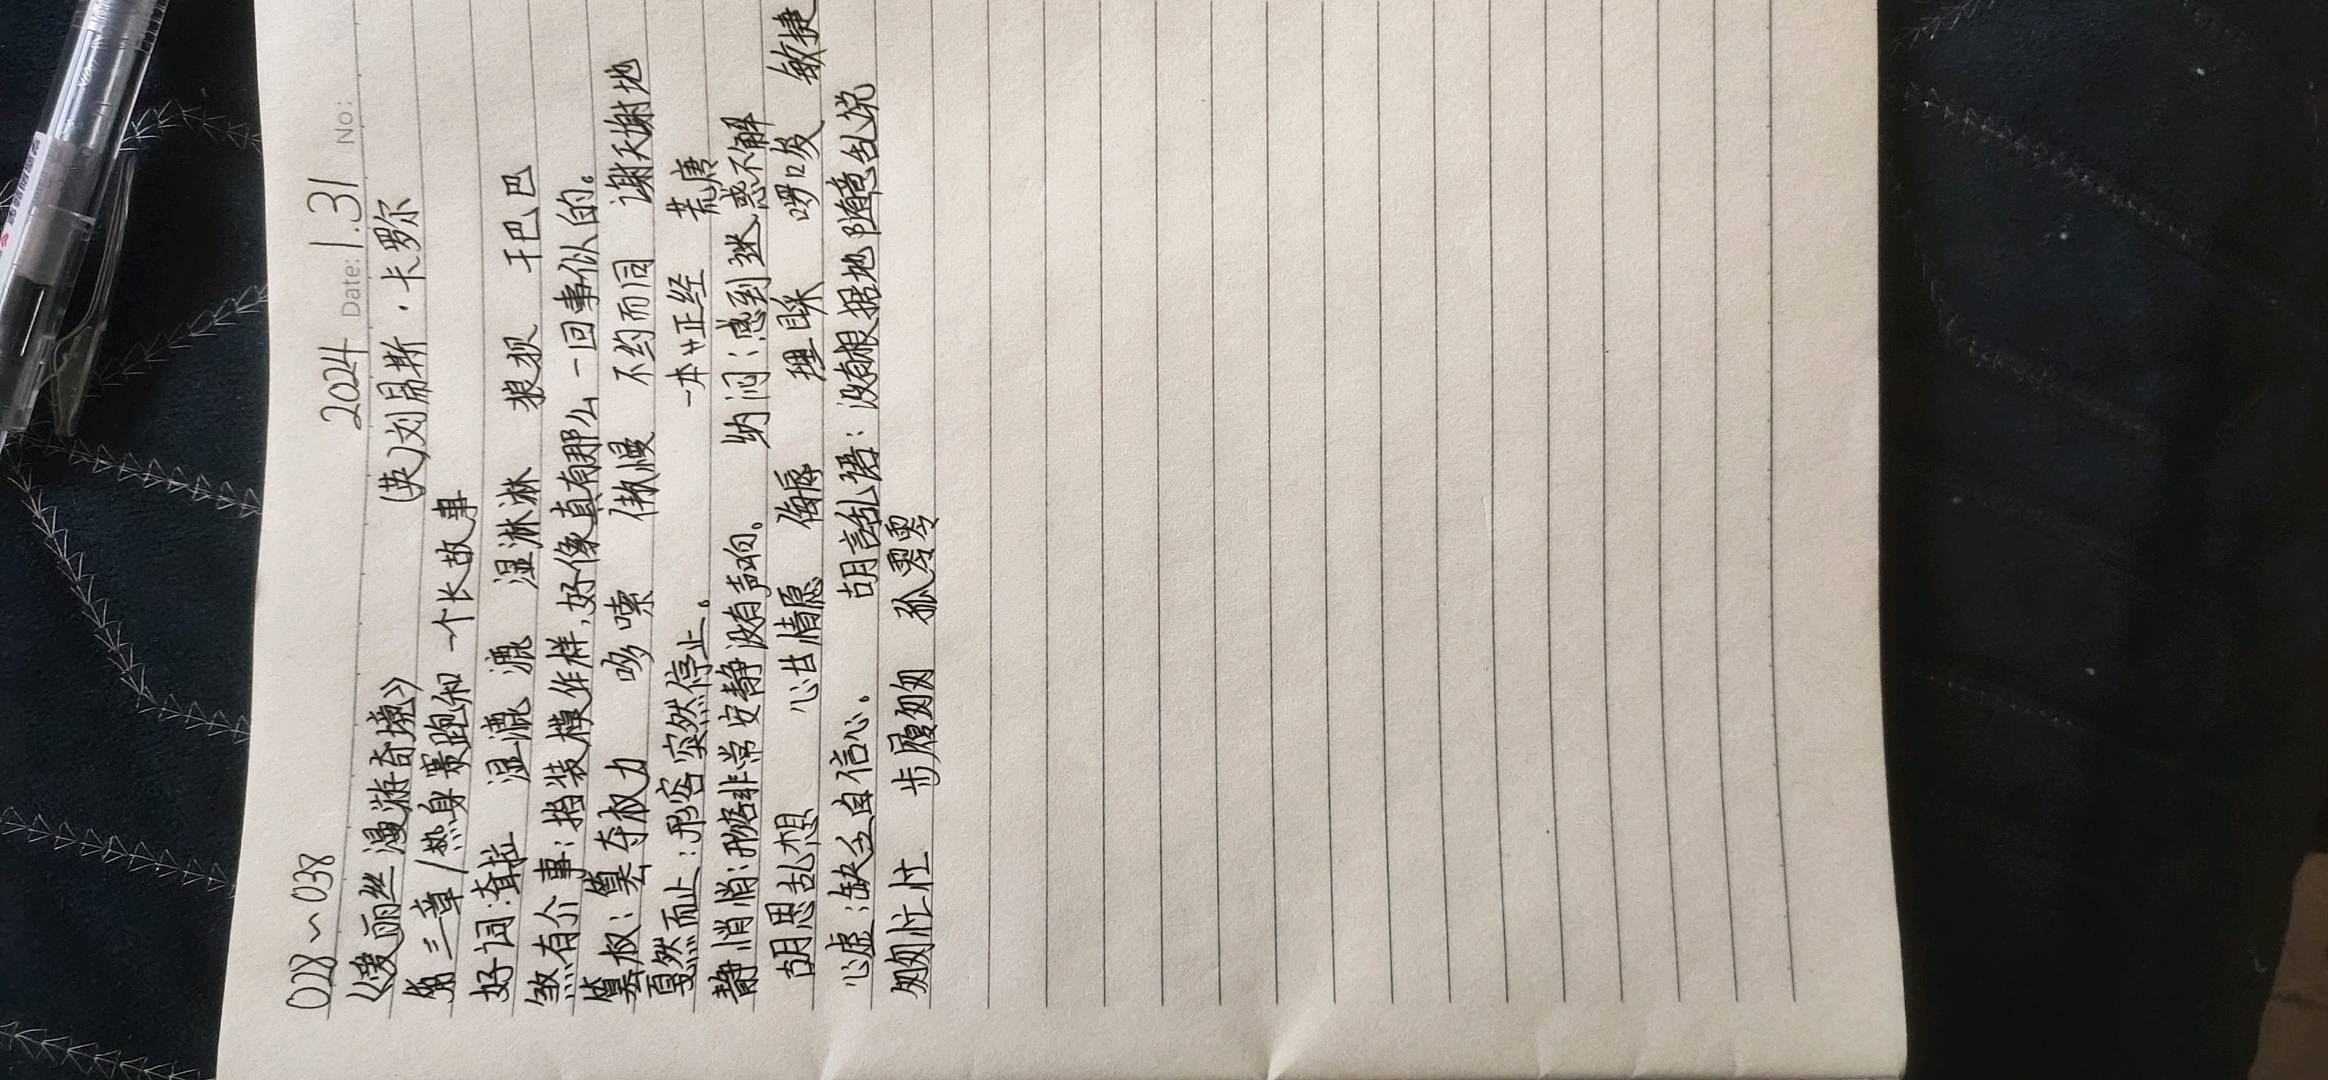 028~038 2024 Date: 1.31 No:
《爱丽丝漫游奇境》 (英)刘易斯·卡罗尔
第三章/热身赛跑和一个长故事
好词:耷拉 湿漉漉 湿淋淋 狼狈 干巴巴
煞有介事:指装模作样,好像真有那么一回事似的。
篡权:篡夺权力 哆嗦 傲慢 不约而同 谢天谢地
戛然而止:形容突然停止。 一本正经 荒唐
静悄悄:形容非常安静没有声响。 纳闷:感到迷惑不解
胡思乱想 心甘情愿 侮辱 理睬 啰唆 敏捷
心虚:缺乏自信心。 胡言乱语:没有根据地随意乱说
匆匆忙忙 步履匆匆 孤零零